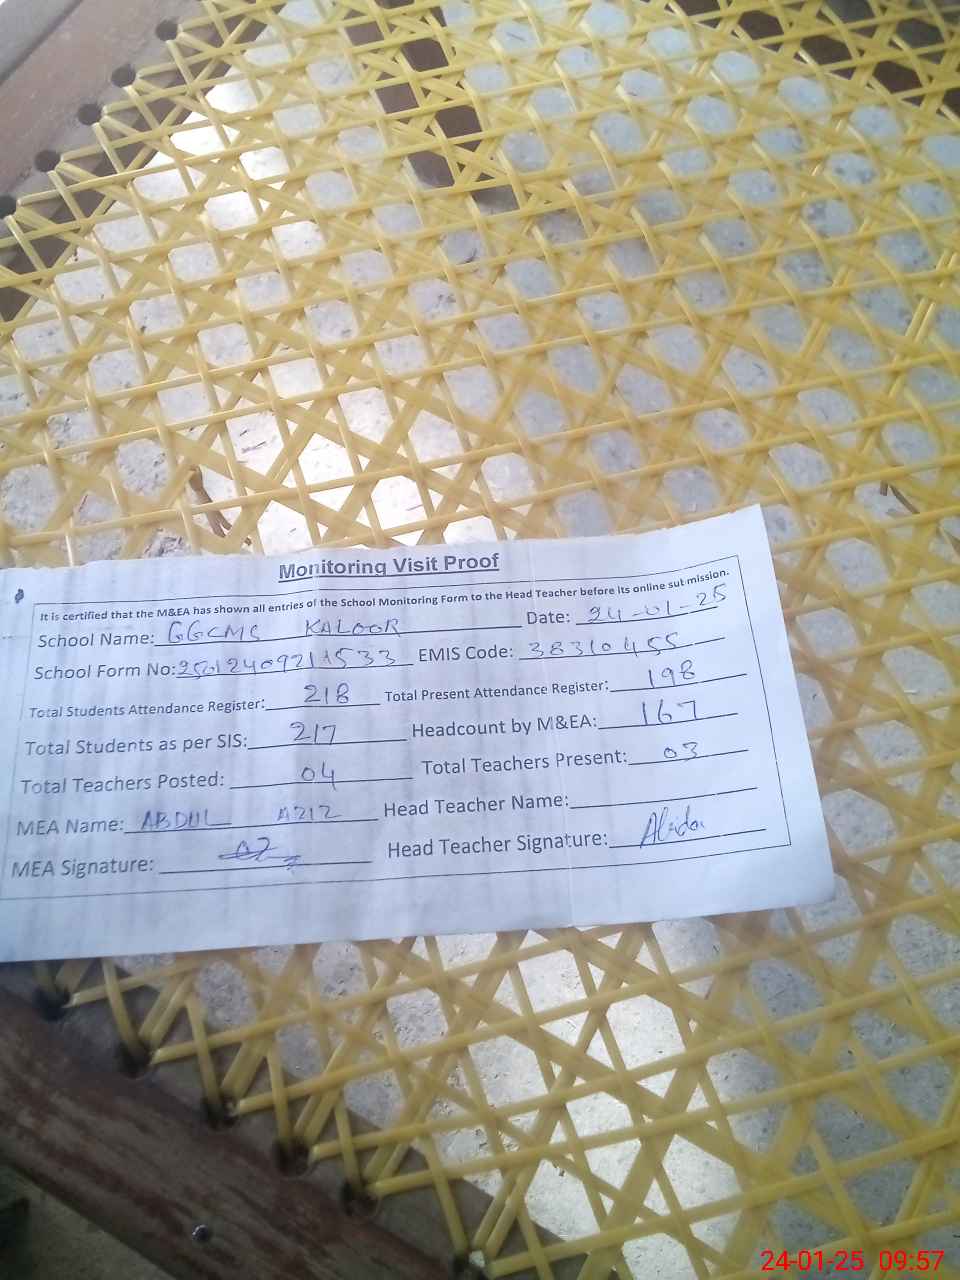 Monitoring Visit Proof
It is certified that the M&EA has shown all entries of the School Monitoring Form to the Head Teacher before its online submission.
School Name: GGCMS KALOOR Date: 24-01-25
School Form No: EMIS Code: 38310455
Total Students Attendance Register: 218 Total Present Attendance Register: 198
Total Students as per SIS: 217 Headcount by M&EA: 167
Total Teachers Posted: 04 Total Teachers Present: 03
MEA Name: ABDUL AZIZ Head Teacher Name:
MEA Signature: Head Teacher Signature: Abida
24-01-25 09:57